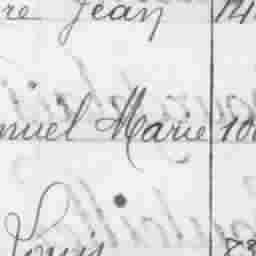 re Jean 14
nuel Marie 10
Louis